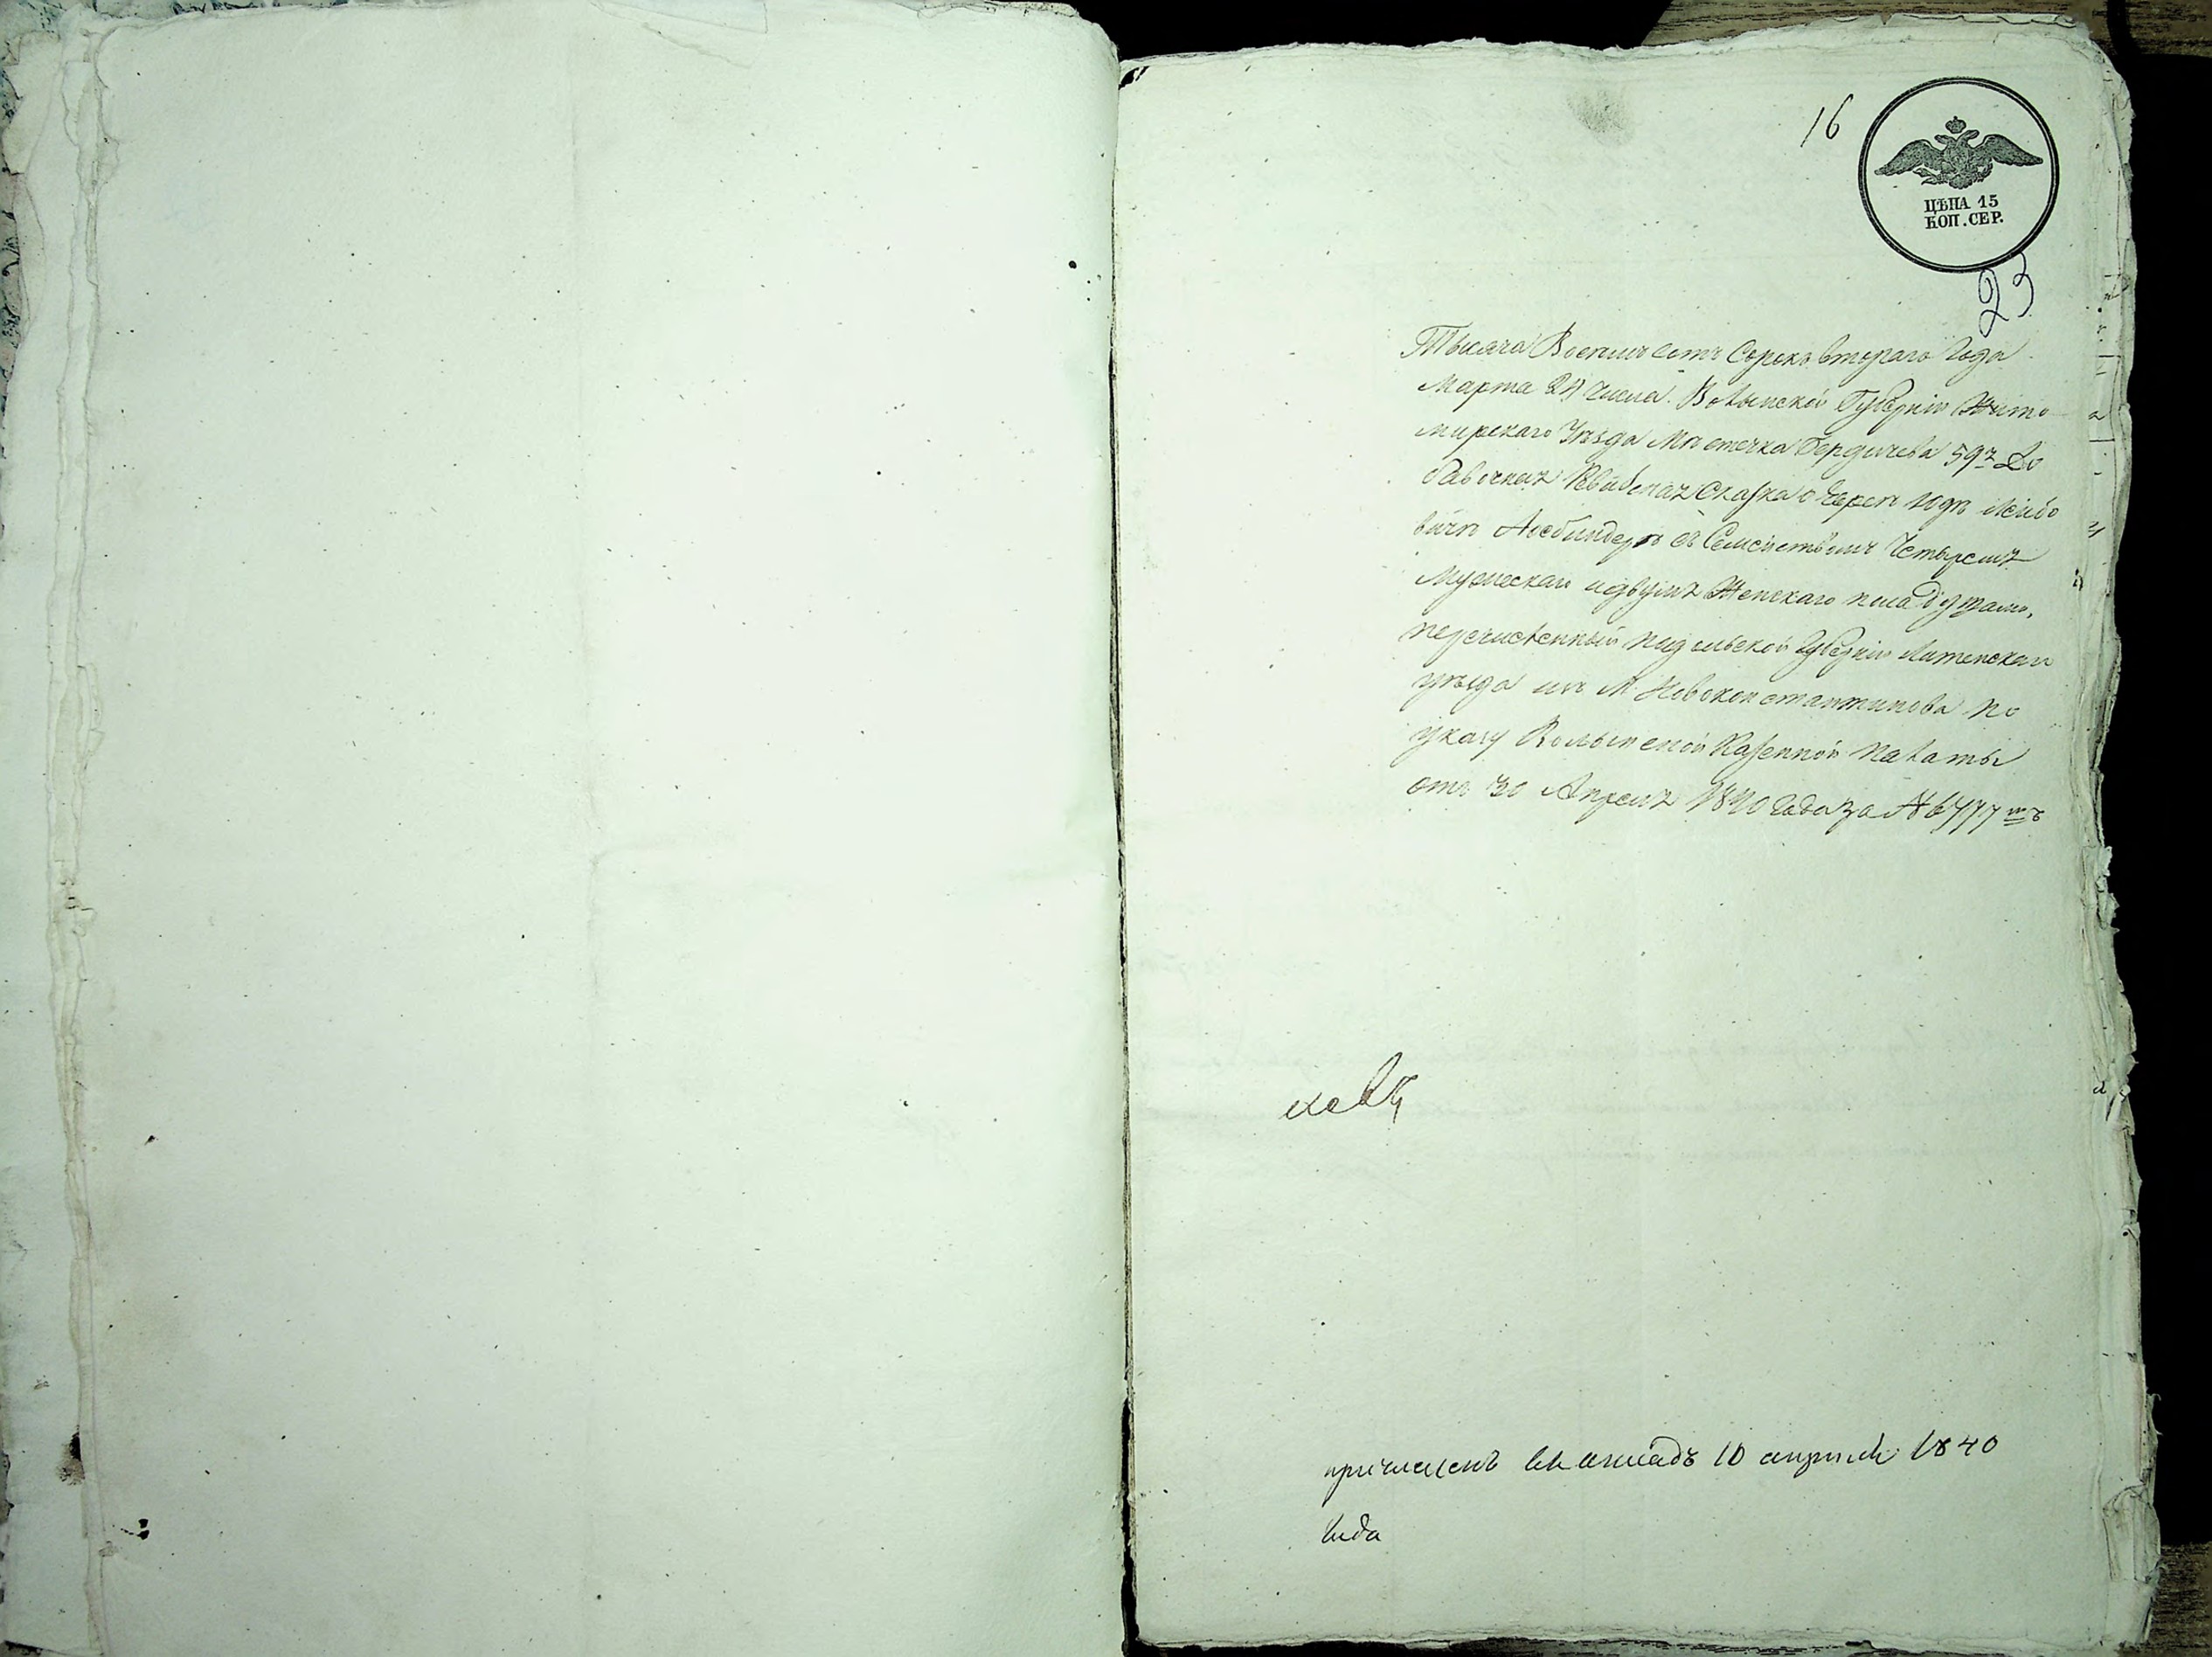 16
ЦѢНА 15
КОП. СЕР.
23
Тысяча Восемь сотъ Сорокъ втораго Года
Марта 24 числа. Волынской Губерніи Жито
мирскаго Уѣзда Мѣстечка Бердичева 59я До
бавочная Ревизская Сказка о Лейбо
вичѣ съ Семействомъ Четырмя
Мужескаго и двумя Женскаго пола душами,
перечисленный Подольской Губерніи
уѣзда изъ М. Новоконстантинова по
указу Волынской Казенной Палаты
отъ 30 Апреля 1840 Года за № 6777мъ
причисленъ въ окладъ 10 апреля 1840
Года